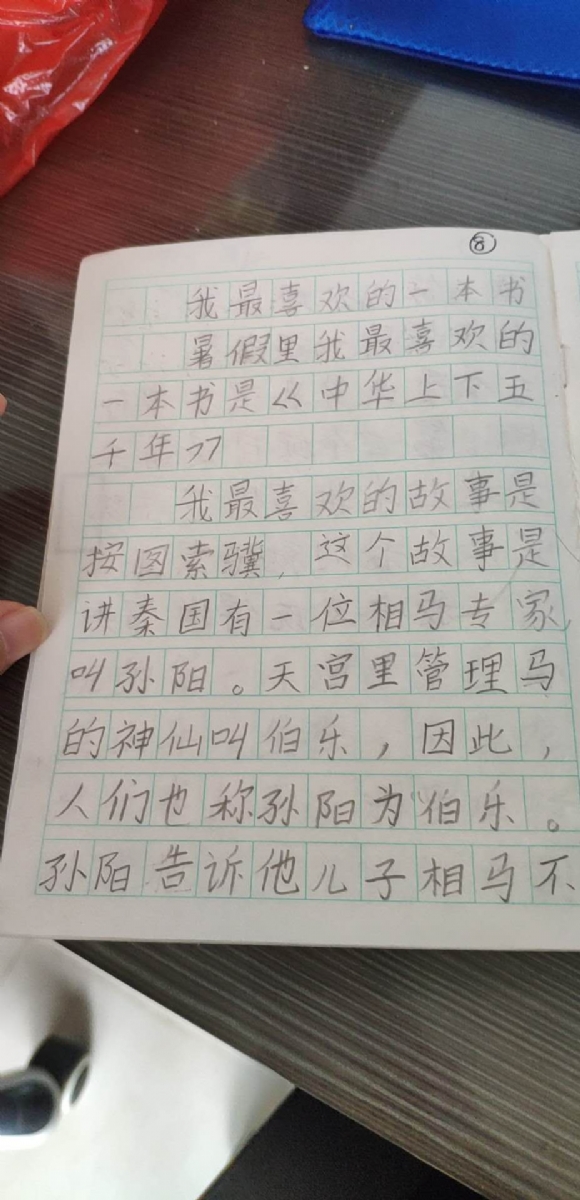 ⑧
我最喜欢的一本书
暑假里我最喜欢的
一本书是《中华上下五
千年》
我最喜欢的故事是
按图索骥，这个故事是
讲秦国有一位相马专家，
叫孙阳。天宫里管理马
的神仙叫伯乐，因此，
人们也称孙阳为伯乐。
孙阳告诉他儿子相马不